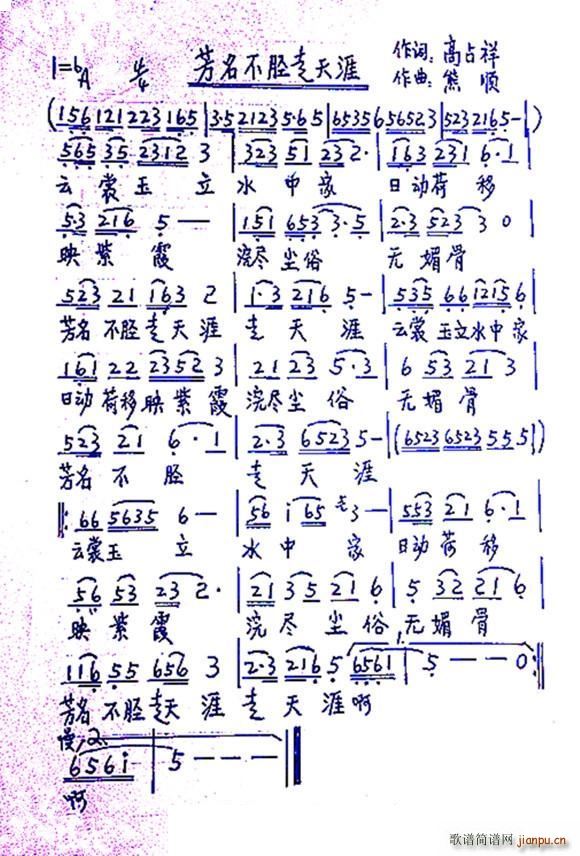 1=♭A 4/4 芳名不胫走天涯 作词:高占祥
作曲:熊顺
(156 121223165|3·521235·65|65356656523|5232165-|)
565 35 2312 3 |323 51 232·|163 231 6·1
云裳玉立 水中家 日动荷移
5·3 216 5 — —|151 653 3·5|2·3 523 3 0
映紫霞 浣尽尘俗 无媚骨
523 21 163 2 |1·3 216 5—|535 66 12156
芳名不胫走天涯 走天涯 云裳玉立水中家
161 22 2352 3|21 23 5·3|6 53 21 3
日动荷移映紫霞 浣尽尘俗 无媚骨
523 21 6·1 |2·3 6523 5—|(6523 6523 5 5 5|)
芳名不胫 走天涯
‖:66 5635 6— |56 i 65 3—|553 21 6·1
云裳玉立 水中家 日动荷移
56 53 23 2· |21 35 21 6 |5 32 21 6
映紫霞 浣尽尘俗 无媚骨
1.
116 55 656 3|2·3 216 5 6561|5 — — 0:‖
芳名不胫走天涯 走天涯啊
慢 2.
656i|5 — — —‖
啊
歌谱简谱网
jianpu.cn